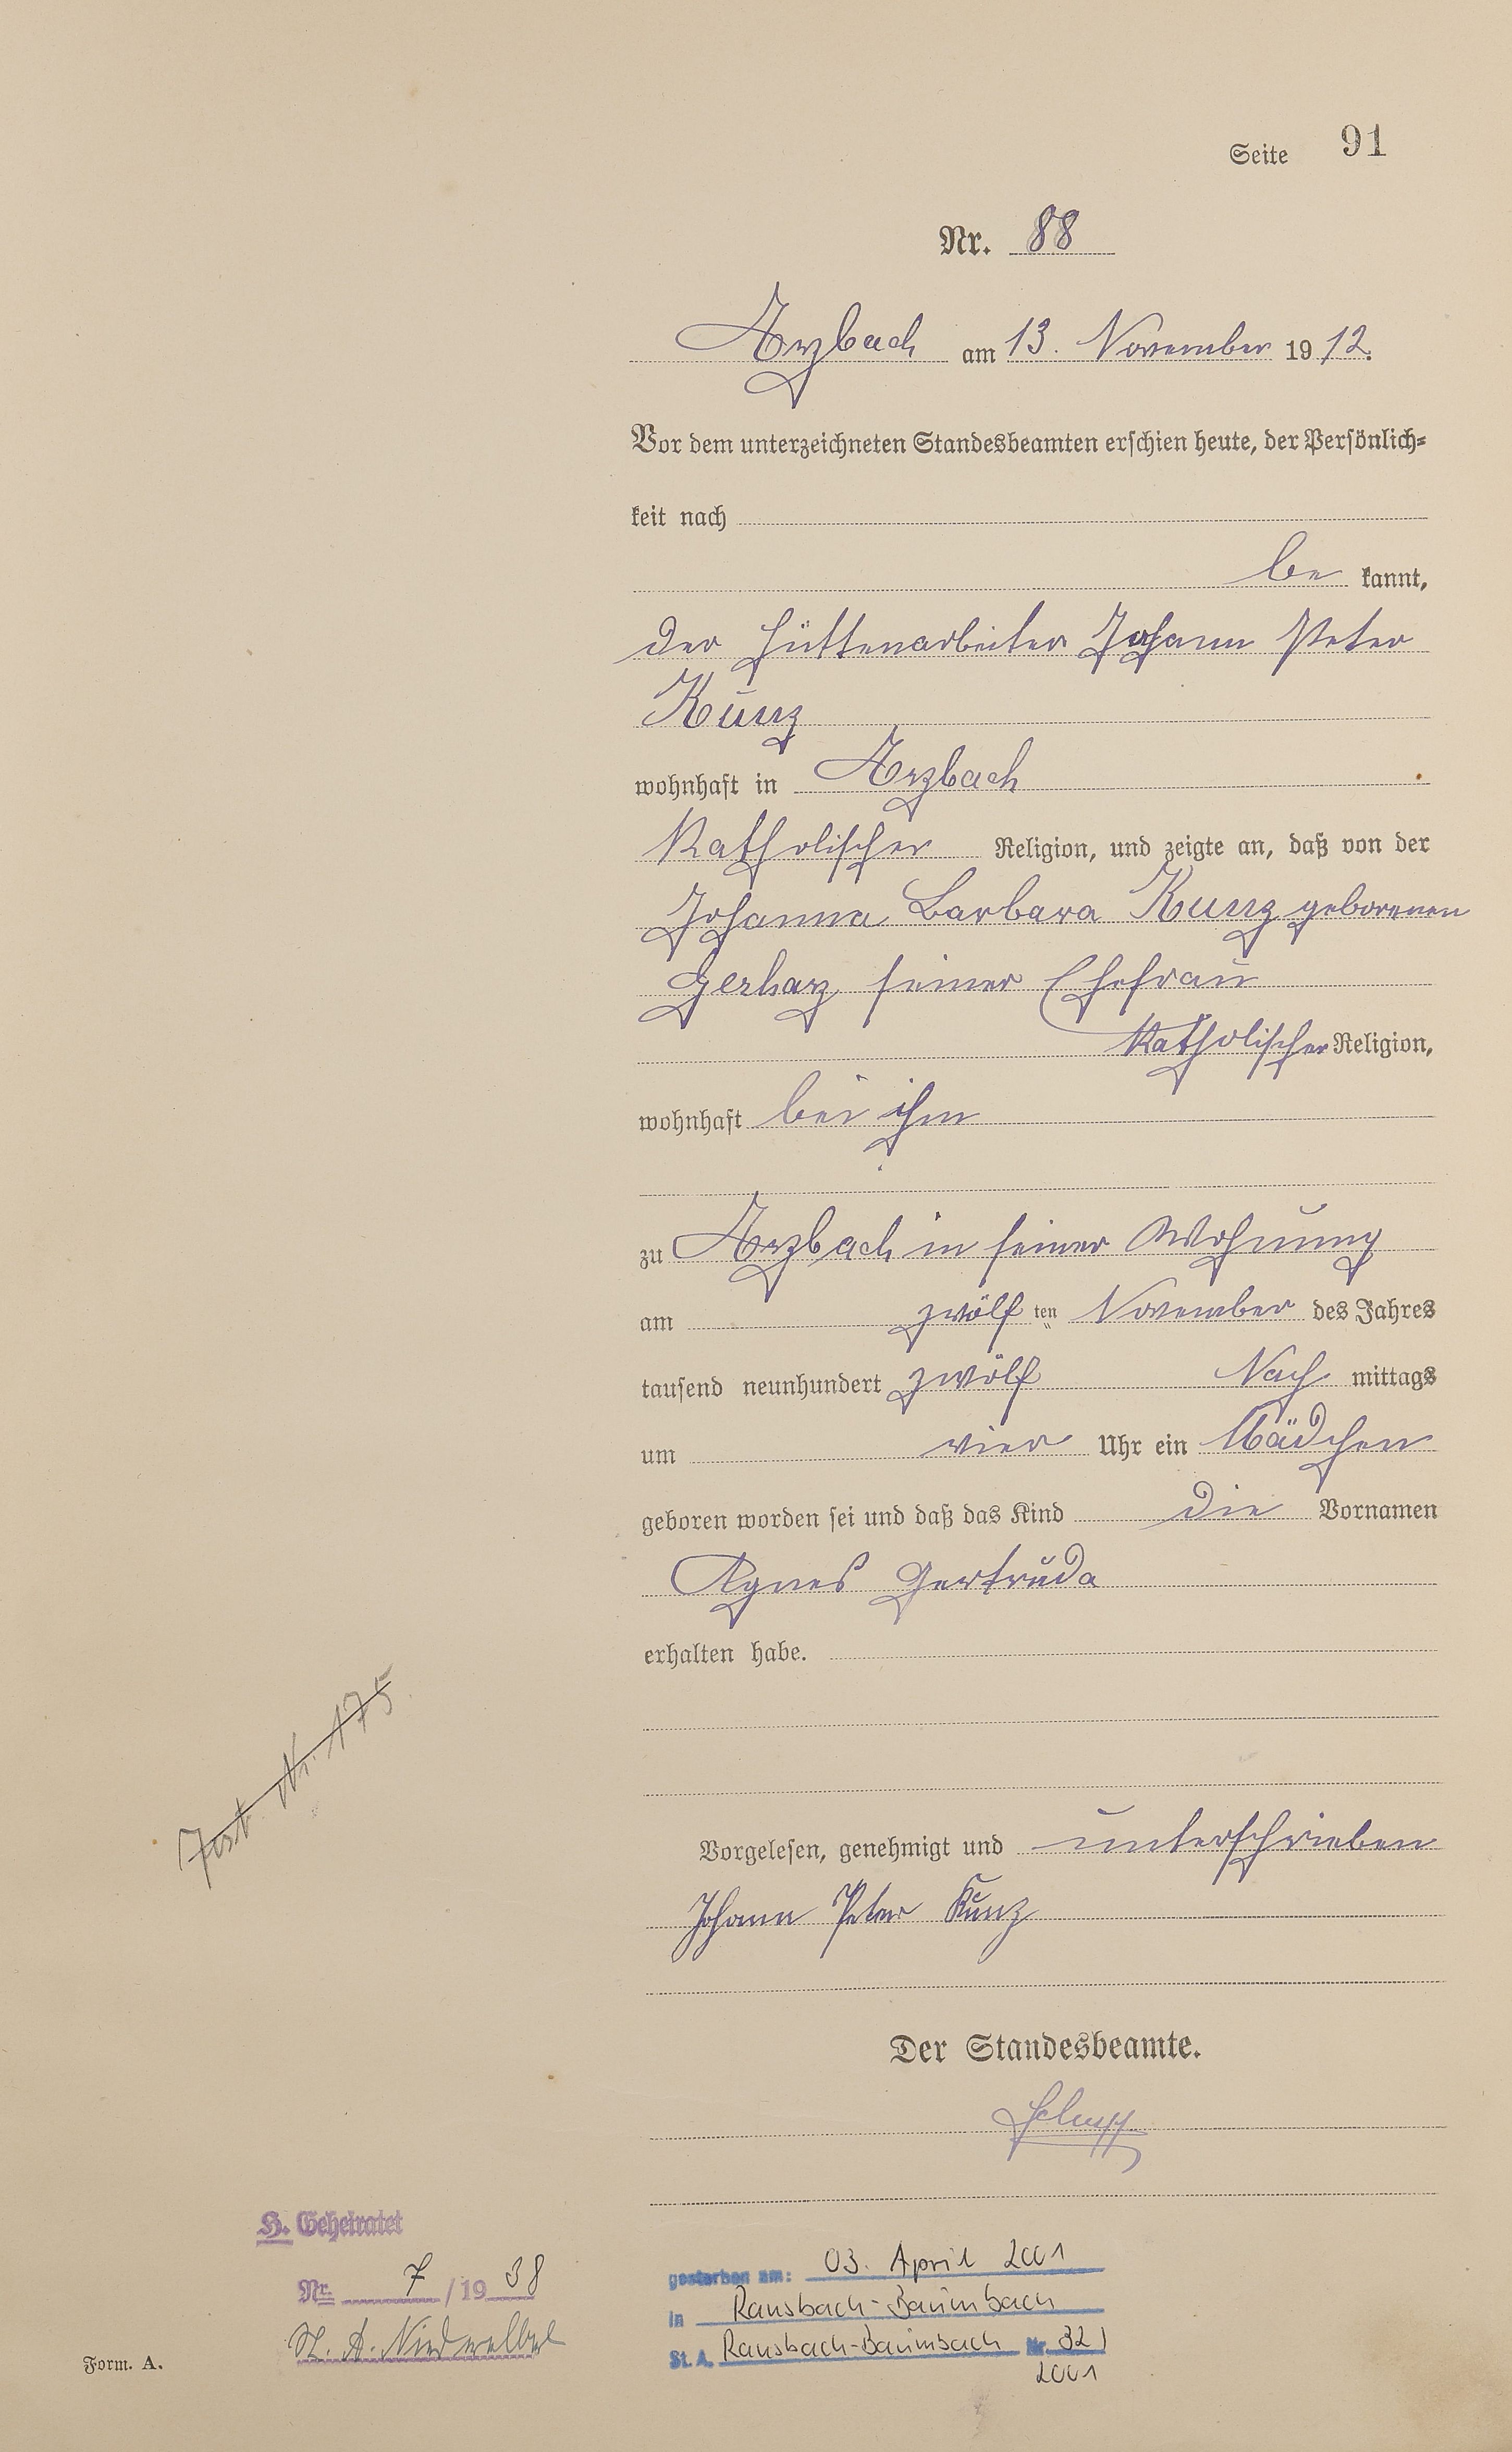 Seite 91
Nr. 88
Arzbach am 13. November 1912.
Vor dem unterzeichneten Standesbeamten erschien heute, der Persönlich=
keit nach
be kannt,
der Hüttenarbeiter Johann Peter
Kunz
wohnhaft in Arzbach
katholischer Religion, und zeigte an, daß von der
Johanna Barbara Kunz geborenen
Gerharz seiner Ehefrau
katholischer Religion,
wohnhaft bei ihm
zu Arzbach in seiner Wohnung
am zwölf ten November des Jahres
tausend neunhundert zwölf Nach mittags
um vier Uhr ein Mädchen
geboren worden sei und daß das Kind die Vornamen
Agnes Gertruda
erhalten habe.
Nr. 175
Vorgelesen, genehmigt und unterschrieben
Johann Peter Kunz
Der Standesbeamte.
H. Geheiratet
Nr. 7 / 19 38
St. A.
Form. A.
gestorben am: 03. April 2001
in Ransbach-Baumbach
St. A. Ransbach-Baumbach Nr. 32 /
2001